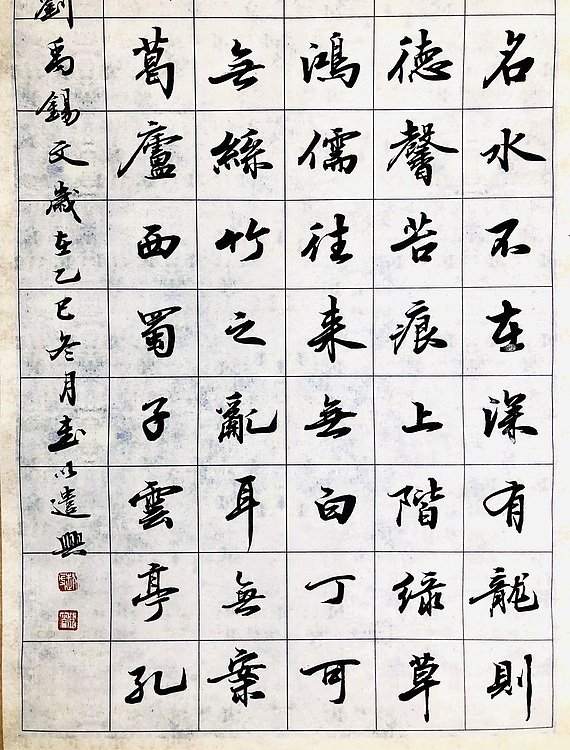 名水不在深有龍則
德馨苔痕上階綠草
鴻儒往来無白丁可
無絲竹之亂耳無案
葛廬西蜀子雲亭孔
劉禹錫文歲在乙巳冬月書以遣興